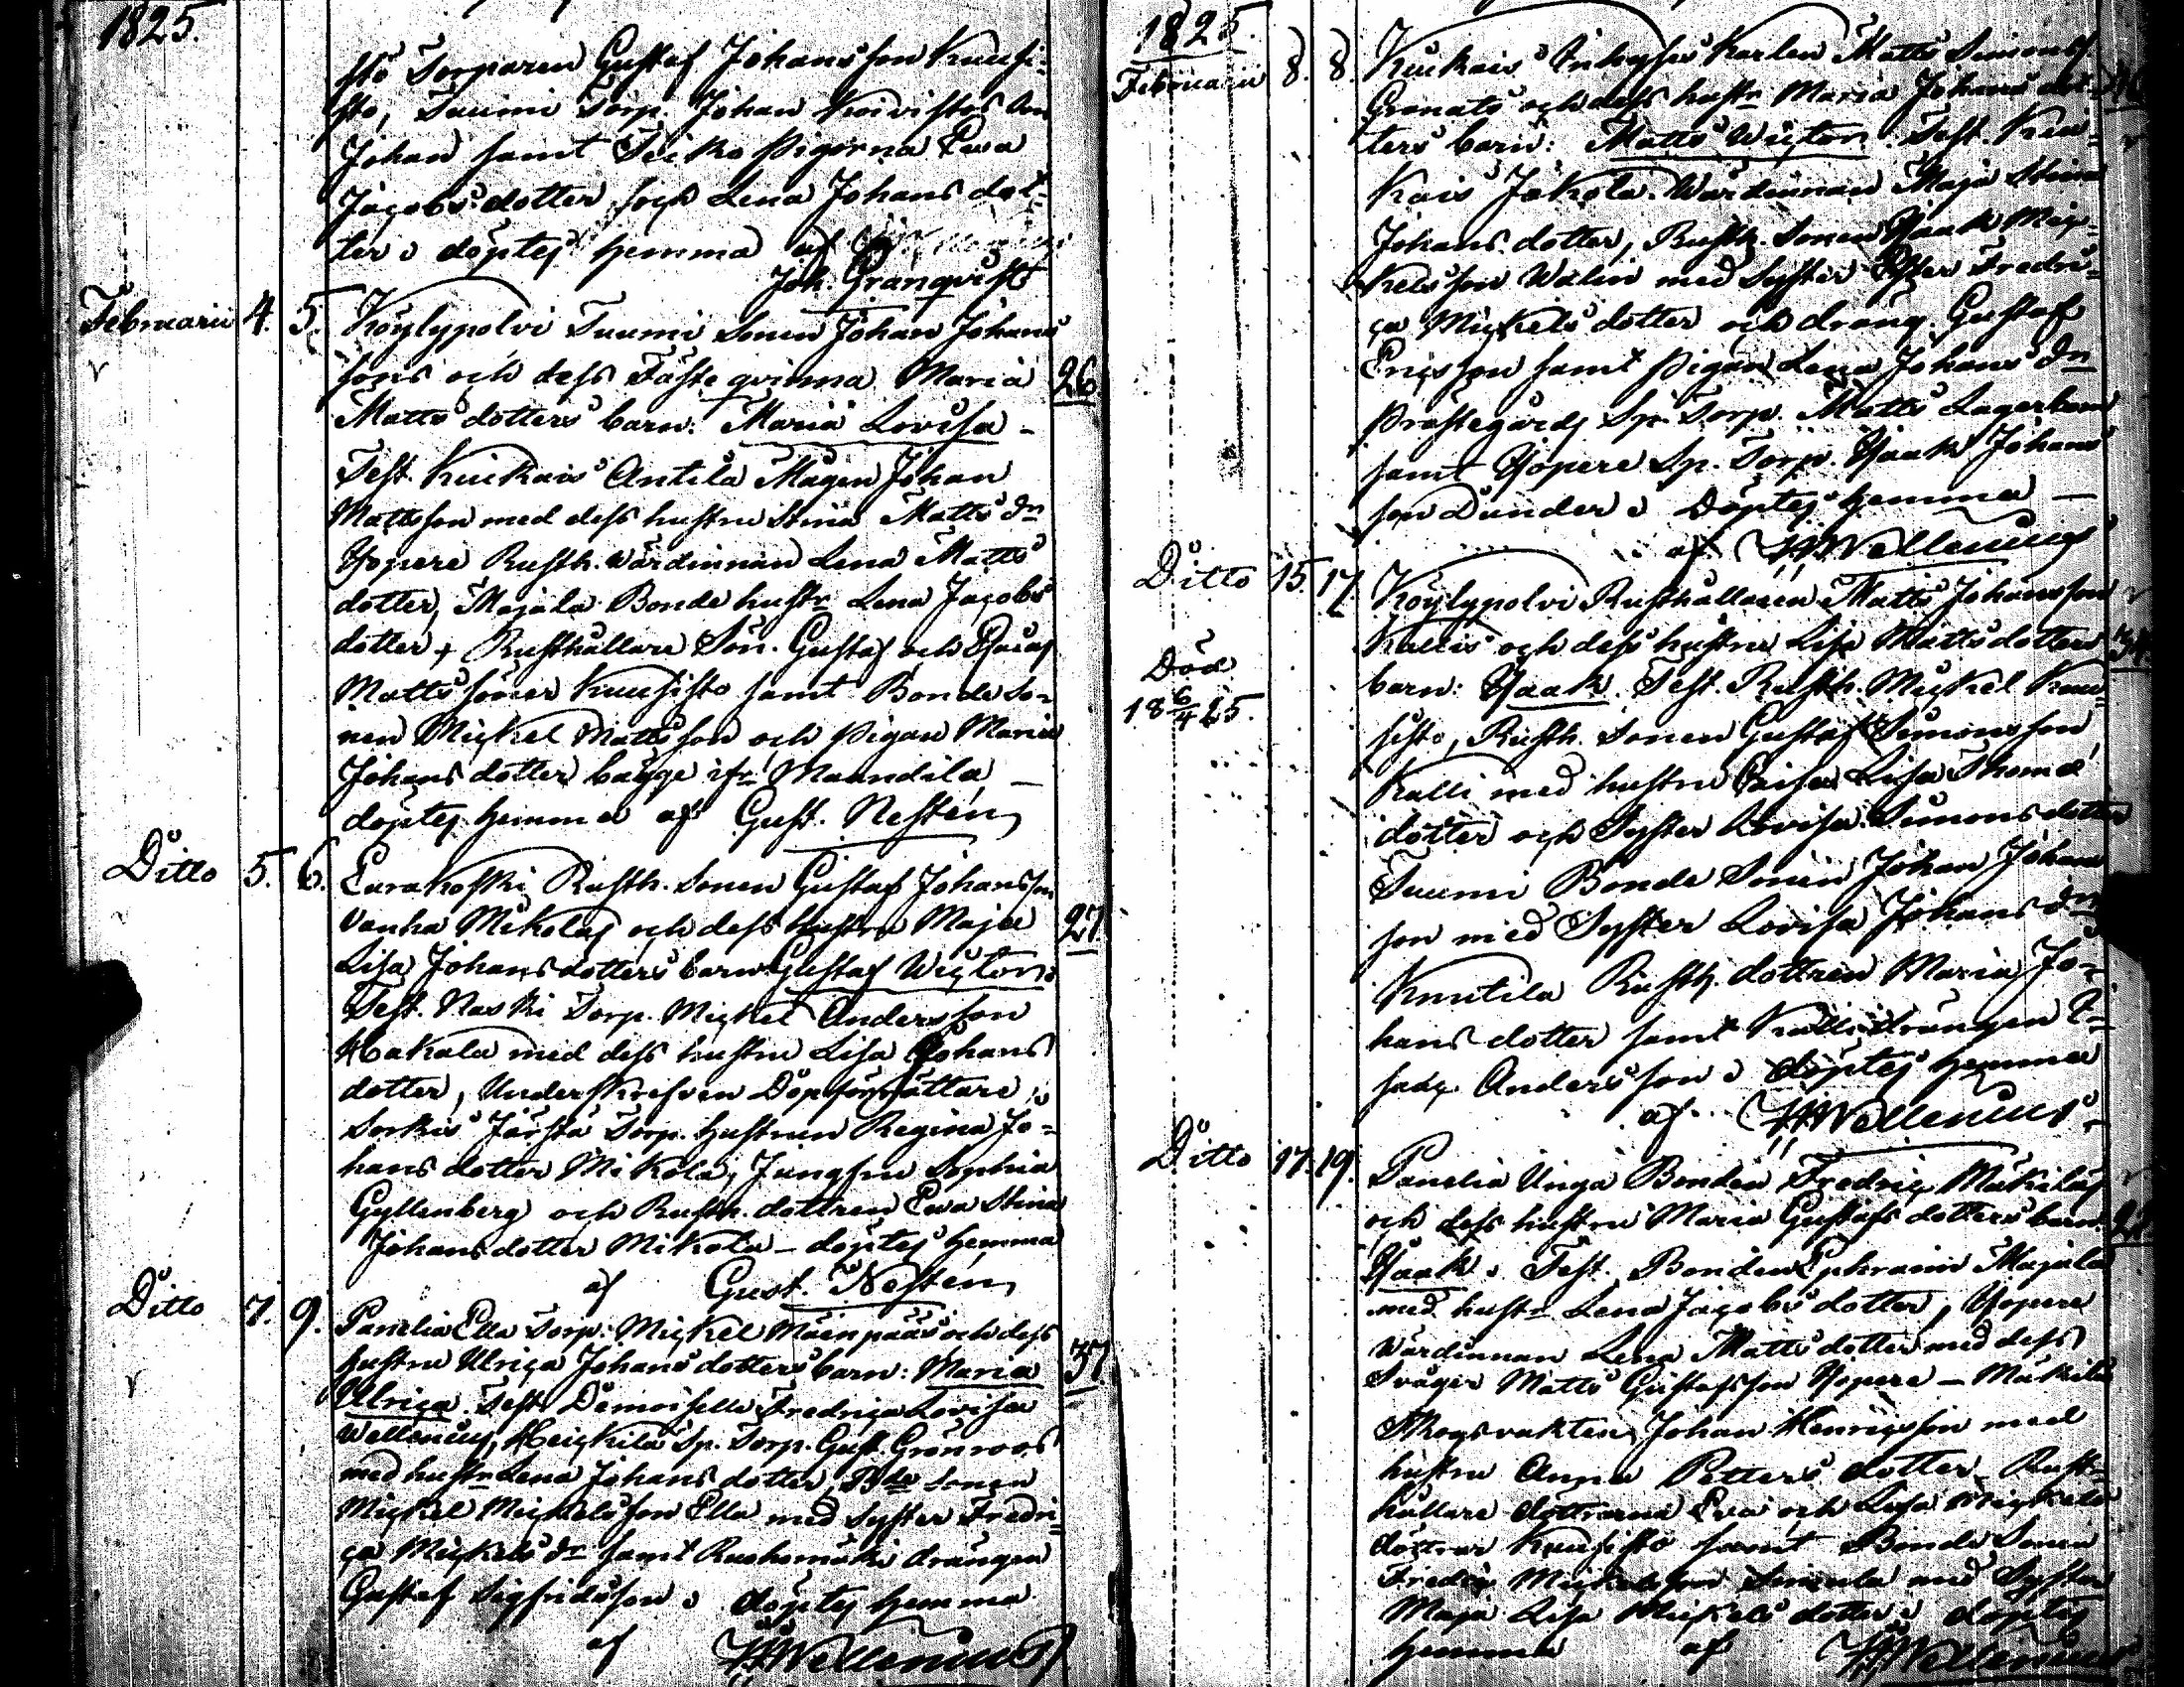 1825.
sto Torparen Gustaf Johansson Kuusi-
sto, Tuumi Torp. Johan Koivistos
Johan samt Seiko Pigorna Ewa
Jacobs dotter och Lena Johans dot-
ter döptes hemma af
Joh. Granqvist
Februarii 4. 5. Köylypolvi Tuumi Sonen Johan Johans
sons och dess Fästeqvinna Maria 26
Matts dotters barn: Maria Lovisa -
Test. Kiukais Antila Mågen Johan
Mattsson med dess hustru Stina Matts dr
Yöpere Rusth. Wärdinnan Lena Matts
dotter, Majala Bonde hustr Lena Jacobs
dotter, Rusthållare Sön. Gustaf och Isaac
Matts söner Kuusisto samt Bonde So-
nen Mickel Mattsson och Pigan Maria
Johans dotter bägge ifr. Maandila -
döptes hemma af Gust. Nestén
Ditto 5. 6. Eurakoski Rusth. Sonen Gustaf Johansson
Vanha Mikolas och dess hustru Maja 27.
Lisa Johans dotters barn Gustaf Wictor:
Test. Naski Torp. Mickel Andersson
Hakala med dess hustru Lisa Johans
dotter, Underskrefven Döpförrättare,
Sorkis Järstä Torp. hustrun Regina Jo-
hans dotter Mikola, Jungfru Sophia
Gyllenberg och Rusth. dottren Ewa Stina
Johans dotter Mikola - döptes hemma
af Gust. Nestén
Ditto 7. 9. Panelia Ella Torp. Mickel Mäenpääs och dess
hustru Ulrica Johans dotters barn: Maria 37
Ulrica. Test. Demoiselle Fredrica Lovisa
Wellenius, Heickilä Sp. Torp. Gust. Grönroos
med hustr Lena Johans dotter, Bde Sonen
Mickel Mickelsson Ella med Syster Fredri-
ca Mickels dr samt Ruohomäki drängen
Gustaf Sigfridsson döptes hemma
af Wellenius
1825.
Februarii 8. 8. Kiukais Inhyses Karlen Matts Simonss
Granats och dess hustr Maria Johans dot-
ters barn: Matts Wictor. Test. Kiu-
kais Jakola Wärdinnan Maja Stina
Johans dotter, Rusth. Sonen Isaak Mic-
kelsson Walin med Syster Fredri-
ca Mickels dotter och dräng Gustaf
Ericsson samt Pigan Lena Johans dr
Prästegårds Sp. Torp. Matts Lagerbom
samt Yöpere Sp. Torp. Isaak Johans
son Dunder Döptes hemma -
af Wellenius
Ditto 15. 17. Köylypolvi Rusthållaren Matts Johansson
Kallis och dess hustru Lisa Mattsdotter 34.
Död
18 6/4 25.
barn: Isaak. Test. Rusth. Mickel Kuu-
sisto, Rusth. Sonen Gustaf Simonsson
Kalli med hustru Lisa Thomæ
dotter och Syster Lovisa Simons dotter
Tuumi Bonde Sonen Johan Johans
son med Syster Lovisa Johans dr
Knutila Rusth. dottren Maria Jo-
hans dotter samt Kalli drängen I-
saac Andersson döptes hemma
af Wellenius
Ditto 17. 19. Panelia Uaga Bonden Fredric Mäkiläs
och dess hustru Maria Gustafs dotters barn
Isaak. Test. Bonden Ephraim Majala
med hustr Lena Jacobs dotter, Yöpere
Wärdinnan Lena Matts dotter med dess
Svåger Matts Gustafsson Yöpere - Mäkilä
Skogsvakten Johan Henricsson med
hustru Anna Petters dotter. Rust-
hållare döttrarna Eva och Lisa Mickels
döttrar Kuusisto samt Bonde Sonen
Fredric Mickelsson Simula med Syster
Maja Lisa Mickels dotter döptes
hemma af Wellenius